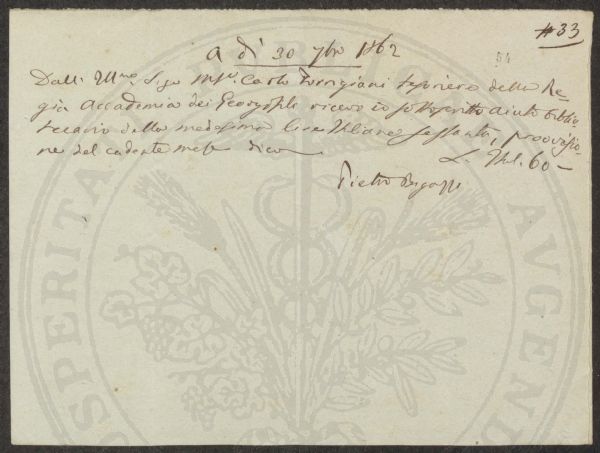 #33
54
A dì 30 7bre 1862
Dall' Illmo Sigr Mse Carlo Torrigiani tesoriere della Re-
gia Accademia dei Georgofili ricevo io sottoscritto aiuto biblio
tecario della medesima Lire Italiane sessanta, provvisio-
ne del cadente mese dico
L. Itl. 60 —
Pietro Bigazzi
PROSPERITA
AUGENDA